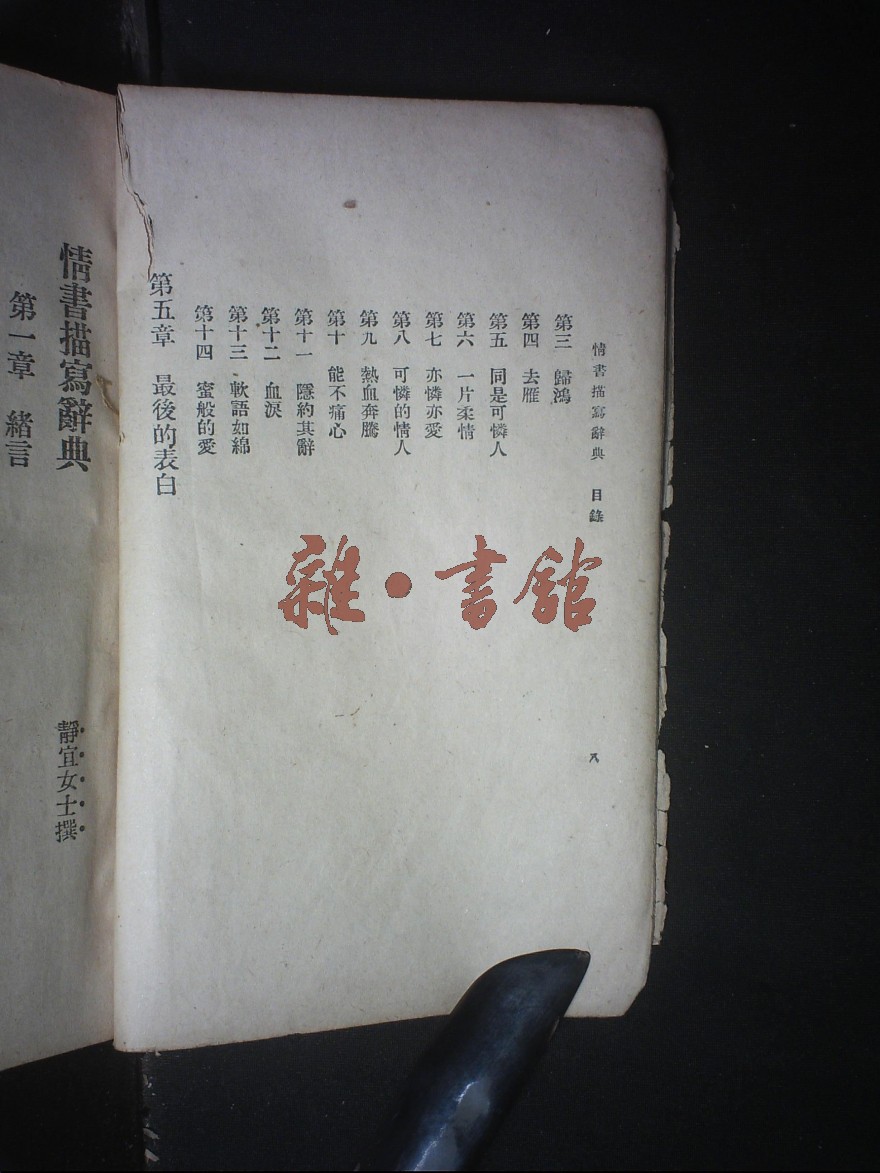 情書描寫辭典　目錄
八
第三　歸鴻
第四　去雁
第五　同是可憐人
第六　一片柔情
第七　亦憐亦愛
第八　可憐的情人
第九　熱血奔騰
第十　能不痛心
第十一　隱約其辭
第十二　血淚
第十三　軟語如綿
第十四　蜜般的愛
第五章　最後的表白
雜·書館
情書描寫辭典
靜宜女士撰
第一章　緒言